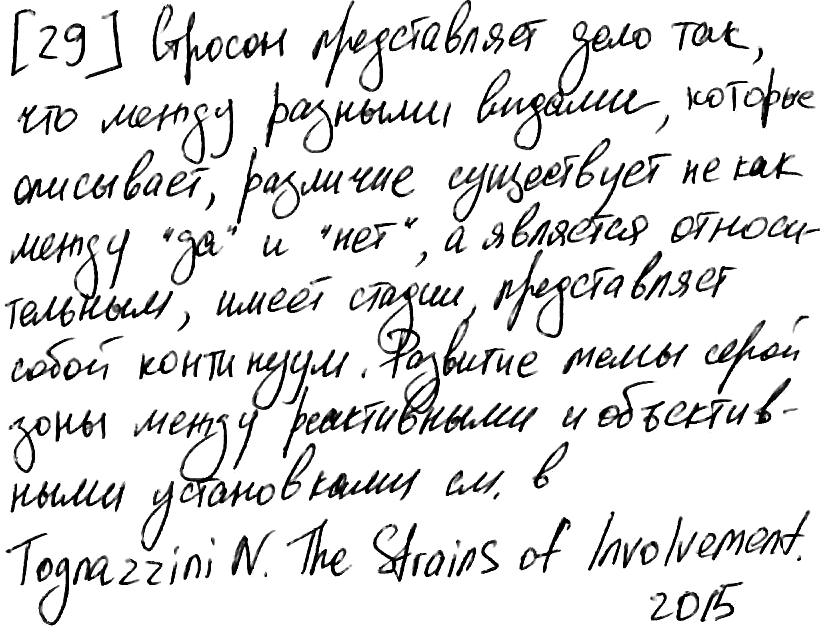 [29] Стросон представляет дело так,
что между разными видами, которые
описывает, различие существует не как
между "да" и "нет", а является относи-
тельным, имеет стадии, представляет
собой континуум. Развитие темы серой
зоны между реактивными и объектив-
ными установками см. в
Tognazzini N. The Strains of Involvement.
2015